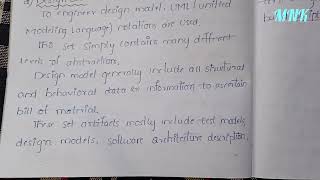 a) Design
To engineer design model, UML (unified
Modeling Language) relations are used.
This set simply contains many different
levels of abstraction.
Design model generally include all structural
and behavioral data or information to ascertain
bill of material.
These set artifacts mostly include test models,
design models, software architecture description.
MNK